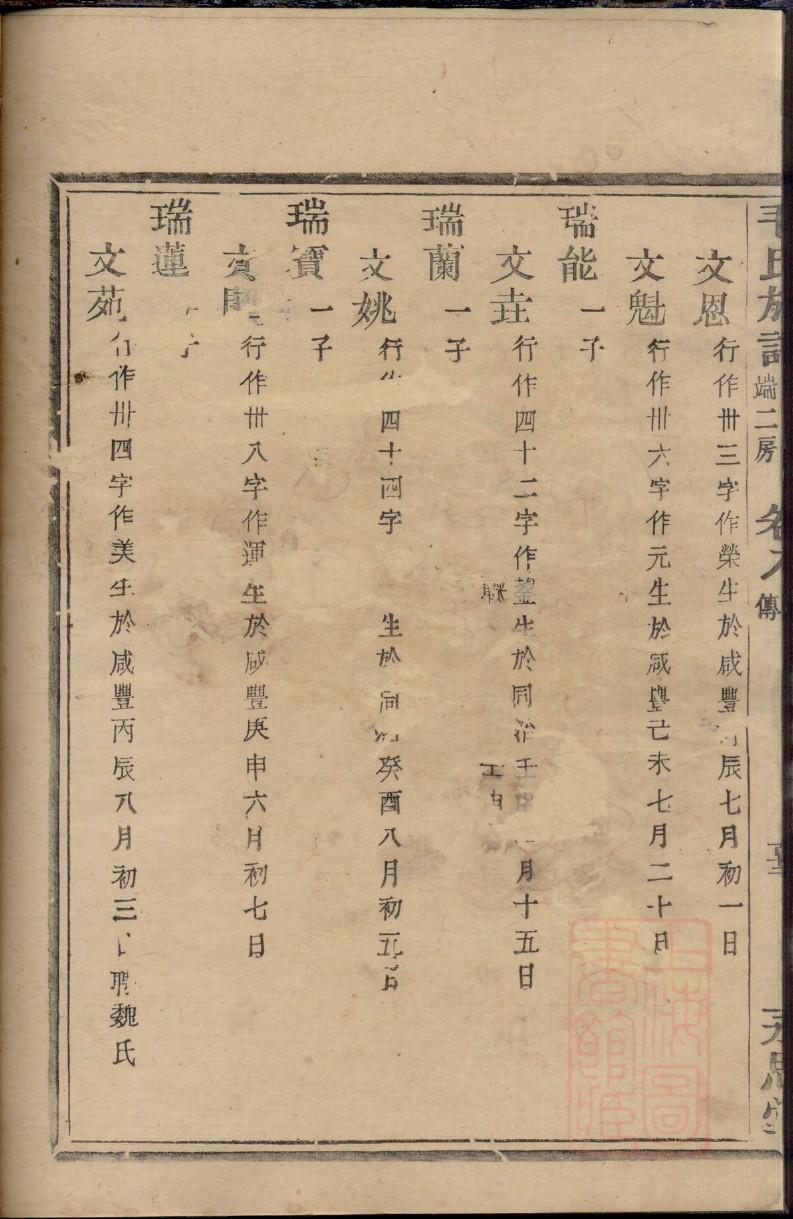 毛氏族譜 端二房 卷 傳
文恩 行作卅三字作榮生於咸豐丙辰七月初一日
文魁 行作卅六字作元生於咸豐己未七月二十日
瑞能 一子
文垚 行作四十二字作 生於同治壬 月十五日
瑞蘭 一子
文姚 行作四十四字 生於同治癸酉八月初五日
瑞寶 一子
文 行作卅八字作運生於咸豐庚申六月初七日
瑞蓮 一子
文苑 行作卅四字作美生於咸豐丙辰八月初三日聘魏氏
上海圖書館藏